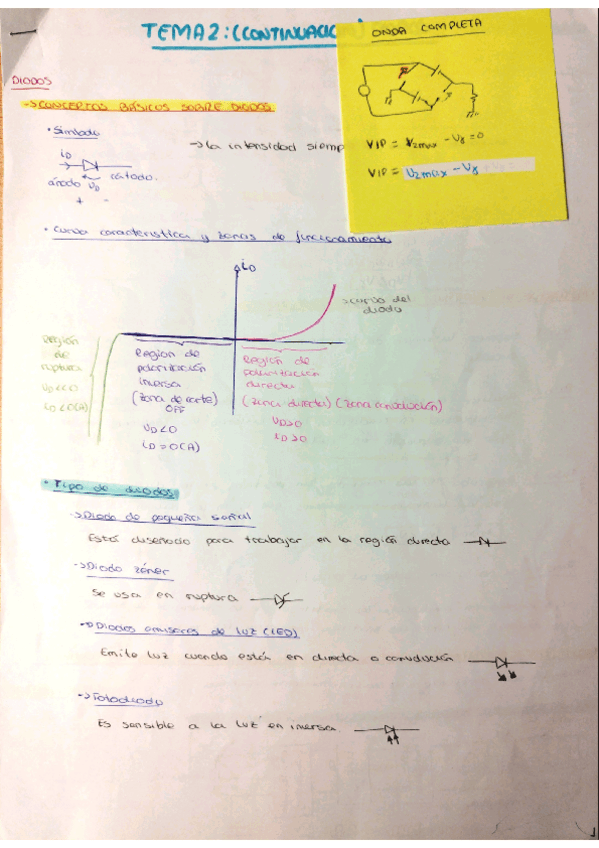 TEMA 2: (CONTINUACION)
ONDA COMPLETA
VIP = V2max - Vγ = 0
VIP = V2max - Vγ
DIODOS
-> CONCEPTOS BÁSICOS SOBRE DIODOS
• Símbolo
-> La intensidad siemp
iD
ánodo VD cátodo.
+ -
• Curva característica y zonas de funcionamiento
iD
-> curva del
diodo
Región
de
ruptura
VD<<0
iD<0(A)
Region de
polarización
inversa
(zona de corte)
OFF
VD<0
iD=0(A)
Región de
polarización
directa
(zona directa) (zona conducción)
VD>0
iD>0
• Tipo de diodos
-> Diodo de pequeña señal
Está diseñado para trabajar en la región directa
-> Diodo zéner
Se usa en ruptura
-> Diodos emisores de luz (LED)
Emite luz cuando está en directa o conducción
-> Fotodiodo
Es sensible a la luz en inversa.